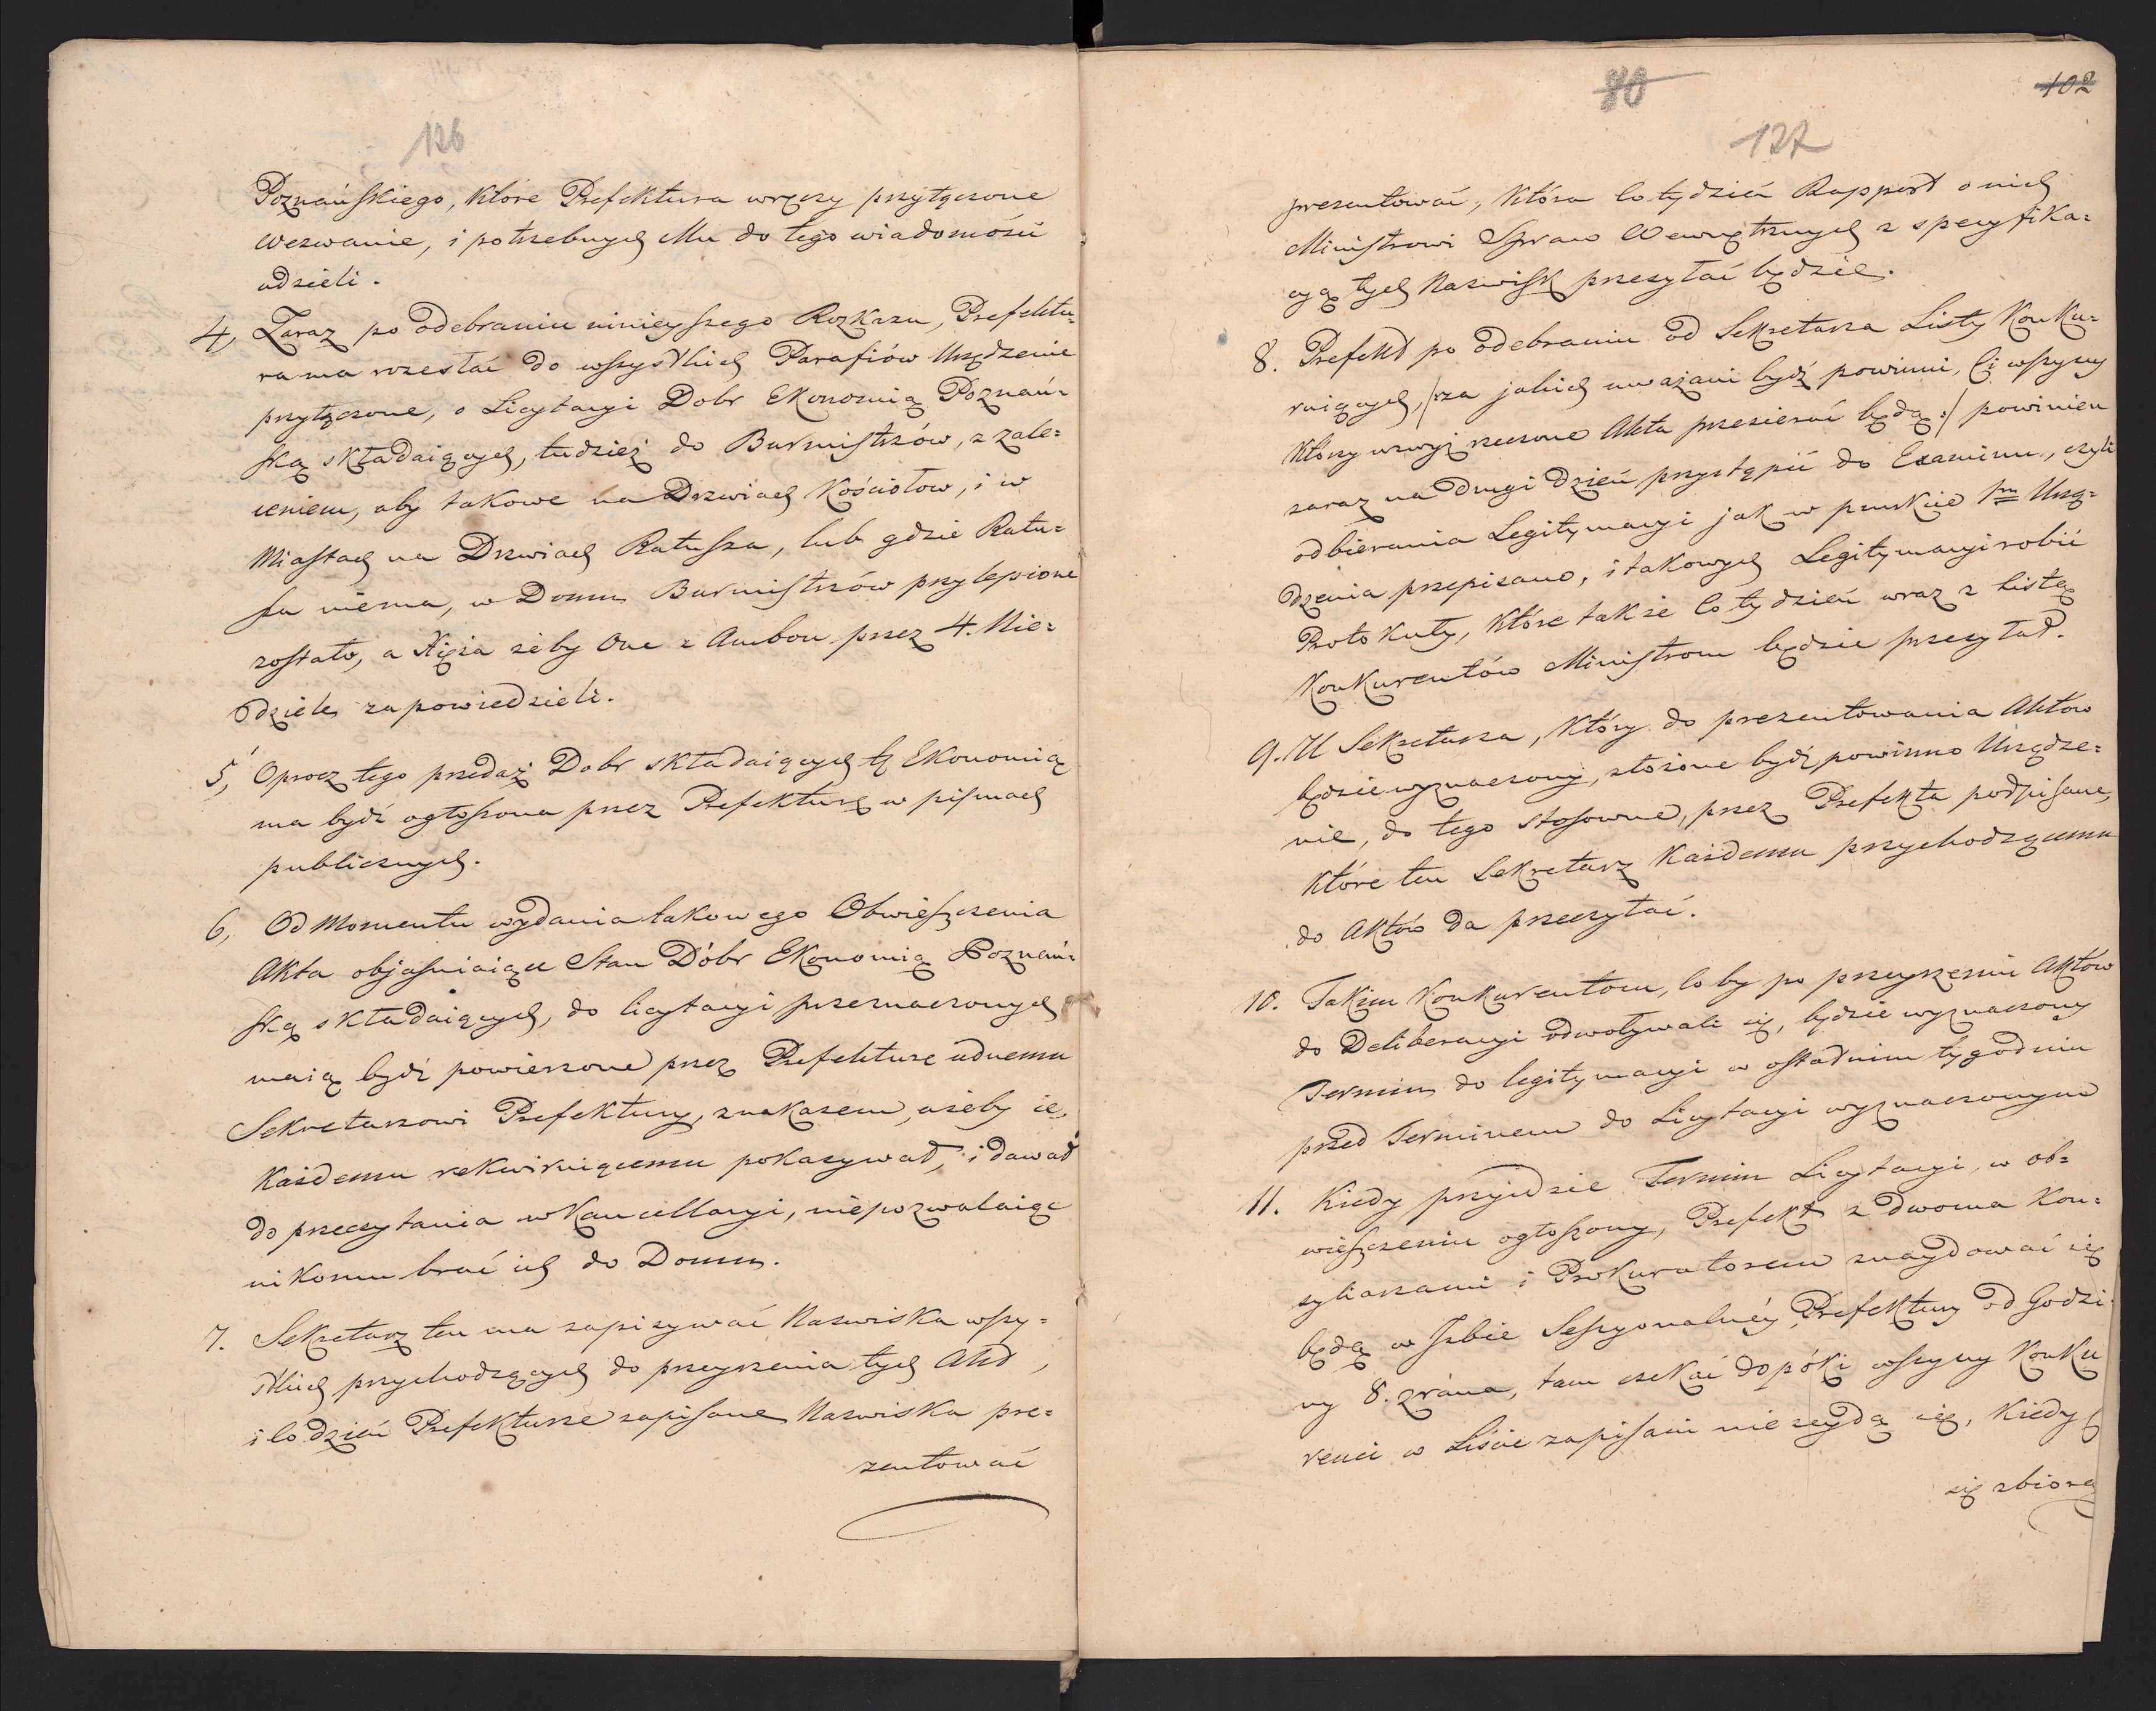 126
Poznańskiego, które Prefektura wręczy przyłączone
Wezwanie, i potrzebnych Mu do tego wiadomości
udzieli.
4, Zaraz po odebraniu ninieyszego Rozkazu, Prefektu=
ra ma rozesłać do wszystkich Parafiów Urządzenie
przyłączone, o Licytacyi Dobr Ekonomią Poznań=
ską składaiących, tudzież do Burmistrzów, z zale=
ceniem, aby takowe na Drzwiach Kościołow, i w
Miastach na Drzwiach Ratusza, lub gdzie Ratu=
sza niema, w Domu Burmistrzów przylepione
zostało, a Xięża żeby One z Ambon przez 4. Nie=
dziele zapowiedzieli.
5, Oprocz tego przedaż Dobr składaiących tę Ekonomią
ma bydź ogłoszona przez Prefekturę w pismach
publicznych.
6, Od Momentu wydania takowego Obwieszczenia
Akta objaśniaiące Stan Dóbr Ekonomią Poznań=
ską składaiących, do licytacyi przeznaczonych
maią bydź powierzone przez Prefekturę iednemu
Sekretarzowi Prefektury, z nakazem, ażeby ie
każdemu rekwiruiącemu pokazywał, i dawał
do przeczytania w Kancellaryi, niepozwalaiąc
nikomu brać ich do Domu.
7. Sekretarz ten ma zapisywać Nazwiska wszy=
stkich przychodzących do przeyrzenia tych Akt,
i co dzień Prefekturze zapisane Nazwiska pre=
zentować
80
102
127
prezentować, która co tydzień Rapport o nich
Ministrowi Spraw Wewnętrznych z specyfika=
cyą tych Nazwisk przesyłać będzie.
8. Prefekt po odebraniu od Sekretarza Listy Konku=
ruiących, /:za jakich uważani bydź powinni, Ci wszyscy
którzy wzwyż rzeczone Akta przezierać będą:/ powinien
zaraz na drugi dzień przystąpić do Examinu, czyli
odbierania Legitymacyi jak w punkcie 1m Urzą=
dzenia przepisano, i takowych Legitymacyi robić
Protokuły, które także Co tydzień wraz z Listą
Konkurentów Ministrom będzie przesyłał.
9. U Sekretarza, który do prezentowania Aktow
będzie wyznaczony, złożone bydź powinno Urządze=
nie, do tego stosowne, przez Prefekta podpisane,
które ten Sekretarz każdemu przychodzącemu
do Aktów da przeczytać.
10. Takim Konkurentom, co by po przeyrzeniu Aktów
do Deliberacyi odwoływali się, będzie wyznaczony
Termin do legitymacyi w ostatnim tygodniu
przed Terminem do Licytacyi wyznaczonym
11. Kiedy przyidzie Termin Licytacyi, w ob=
wieszczeniu ogłoszony, Prefekt z dwoma Kon=
syliarzami i Prokuratorem znaydować się
będą w Izbie Sessyonalnéy Prefektury od Godzi=
ny 8. zrana, tam czekać dopóki wszyscy Konku
renci w Liście zapisani nie zeydą się, kiedy
się zbiorą